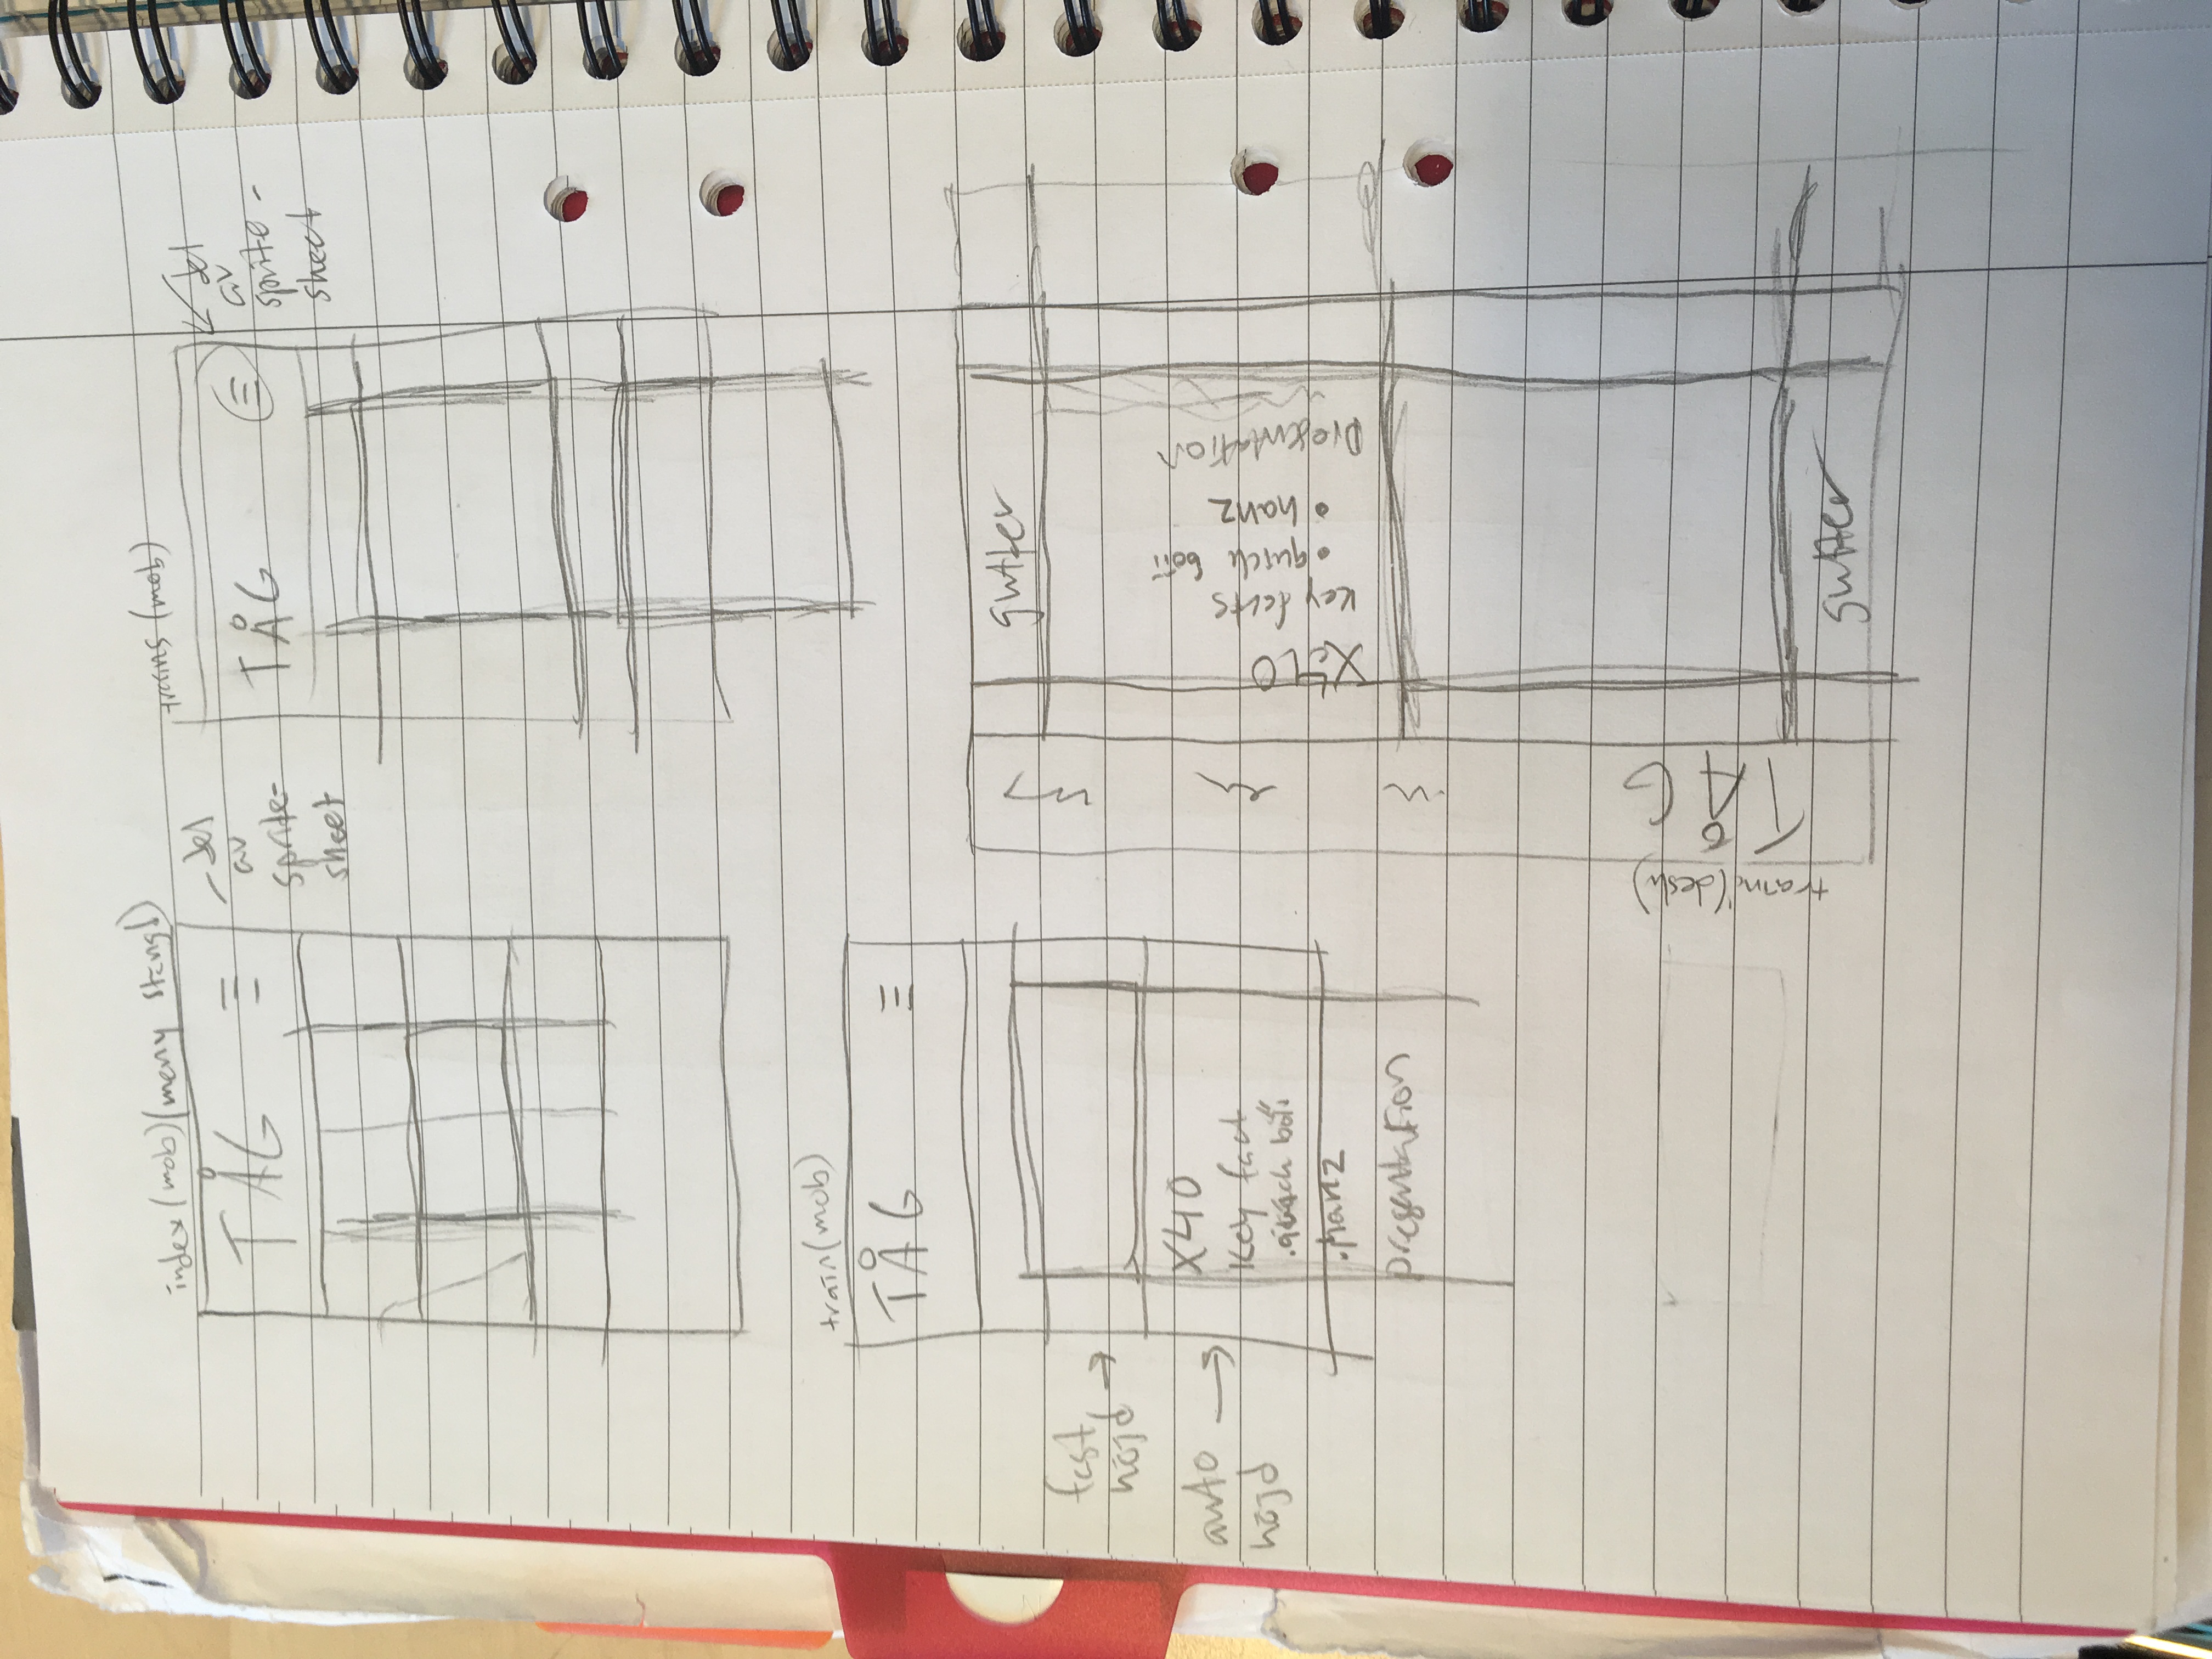 index (mob) (meny stängd)
TÅG
del
av
sprite-
sheet
trains (mob)
TÅG
del
av
sprite-
sheet
train (mob)
TÅG
fast
höjd
auto
höjd
X40
Key fact
. quick boii
. hanz
presentation
train (desk)
TÅG
gutter
X40
Key facts
• quick boii
• hanz
Presentation
gutter